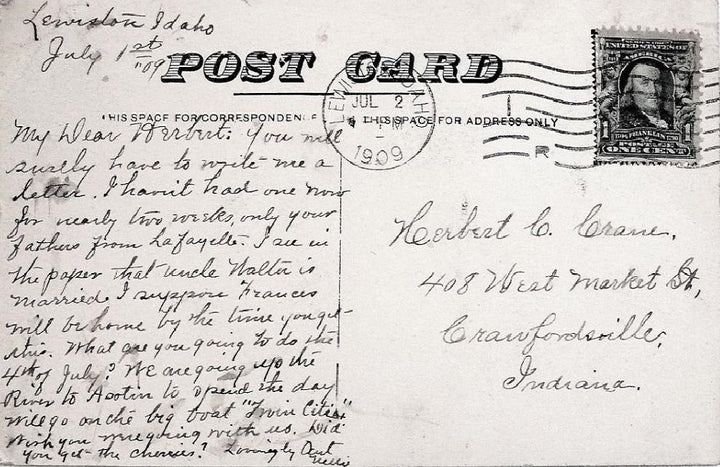 Lewiston Idaho
July 1st
"09
POST CARD
THIS SPACE FOR CORRESPONDENCE
THIS SPACE FOR ADDRESS ONLY
LEWISTON IDAHO
JUL 2
PM
1909
R
UNITED STATES OF
AMERICA
FRANKLIN
POSTAGE
1 1
ONE CENT
My Dear Herbert: You will
surely have to write me a
letter. I havnt had one now
for nearly two weeks, only your
fathers from Lafayette. I see in
the paper that uncle Walter is
married. I suppose Frances
will be home by the time you get
this. What are you going to do the
4th of July? We are going up the
River to Asotin to spend the day
will go on the big boat "Twin Cities"
Wish you were going with us. Did
you get the cherries? Lovingly Aunt
Nellie
Herbert C. Crane,
408 West Market St,
Crawfordsville,
Indiana.